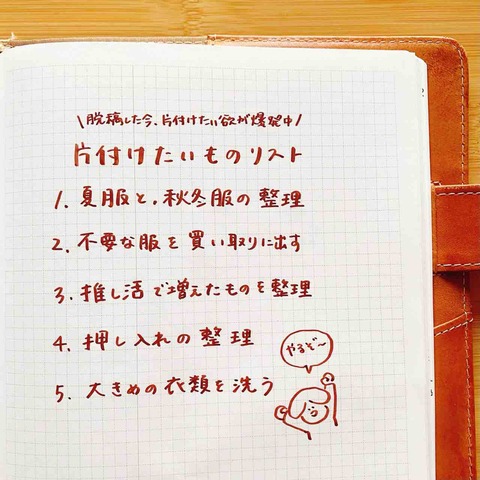 \脱稿した今、片付けたい欲が爆発中/
片付けたいものリスト
1. 夏服と、秋冬服の整理
2. 不要な服を買い取りに出す
3. 推し活で増えたものを整理
4. 押し入れの整理
やるぞ〜
5. 大きめの衣類を洗う